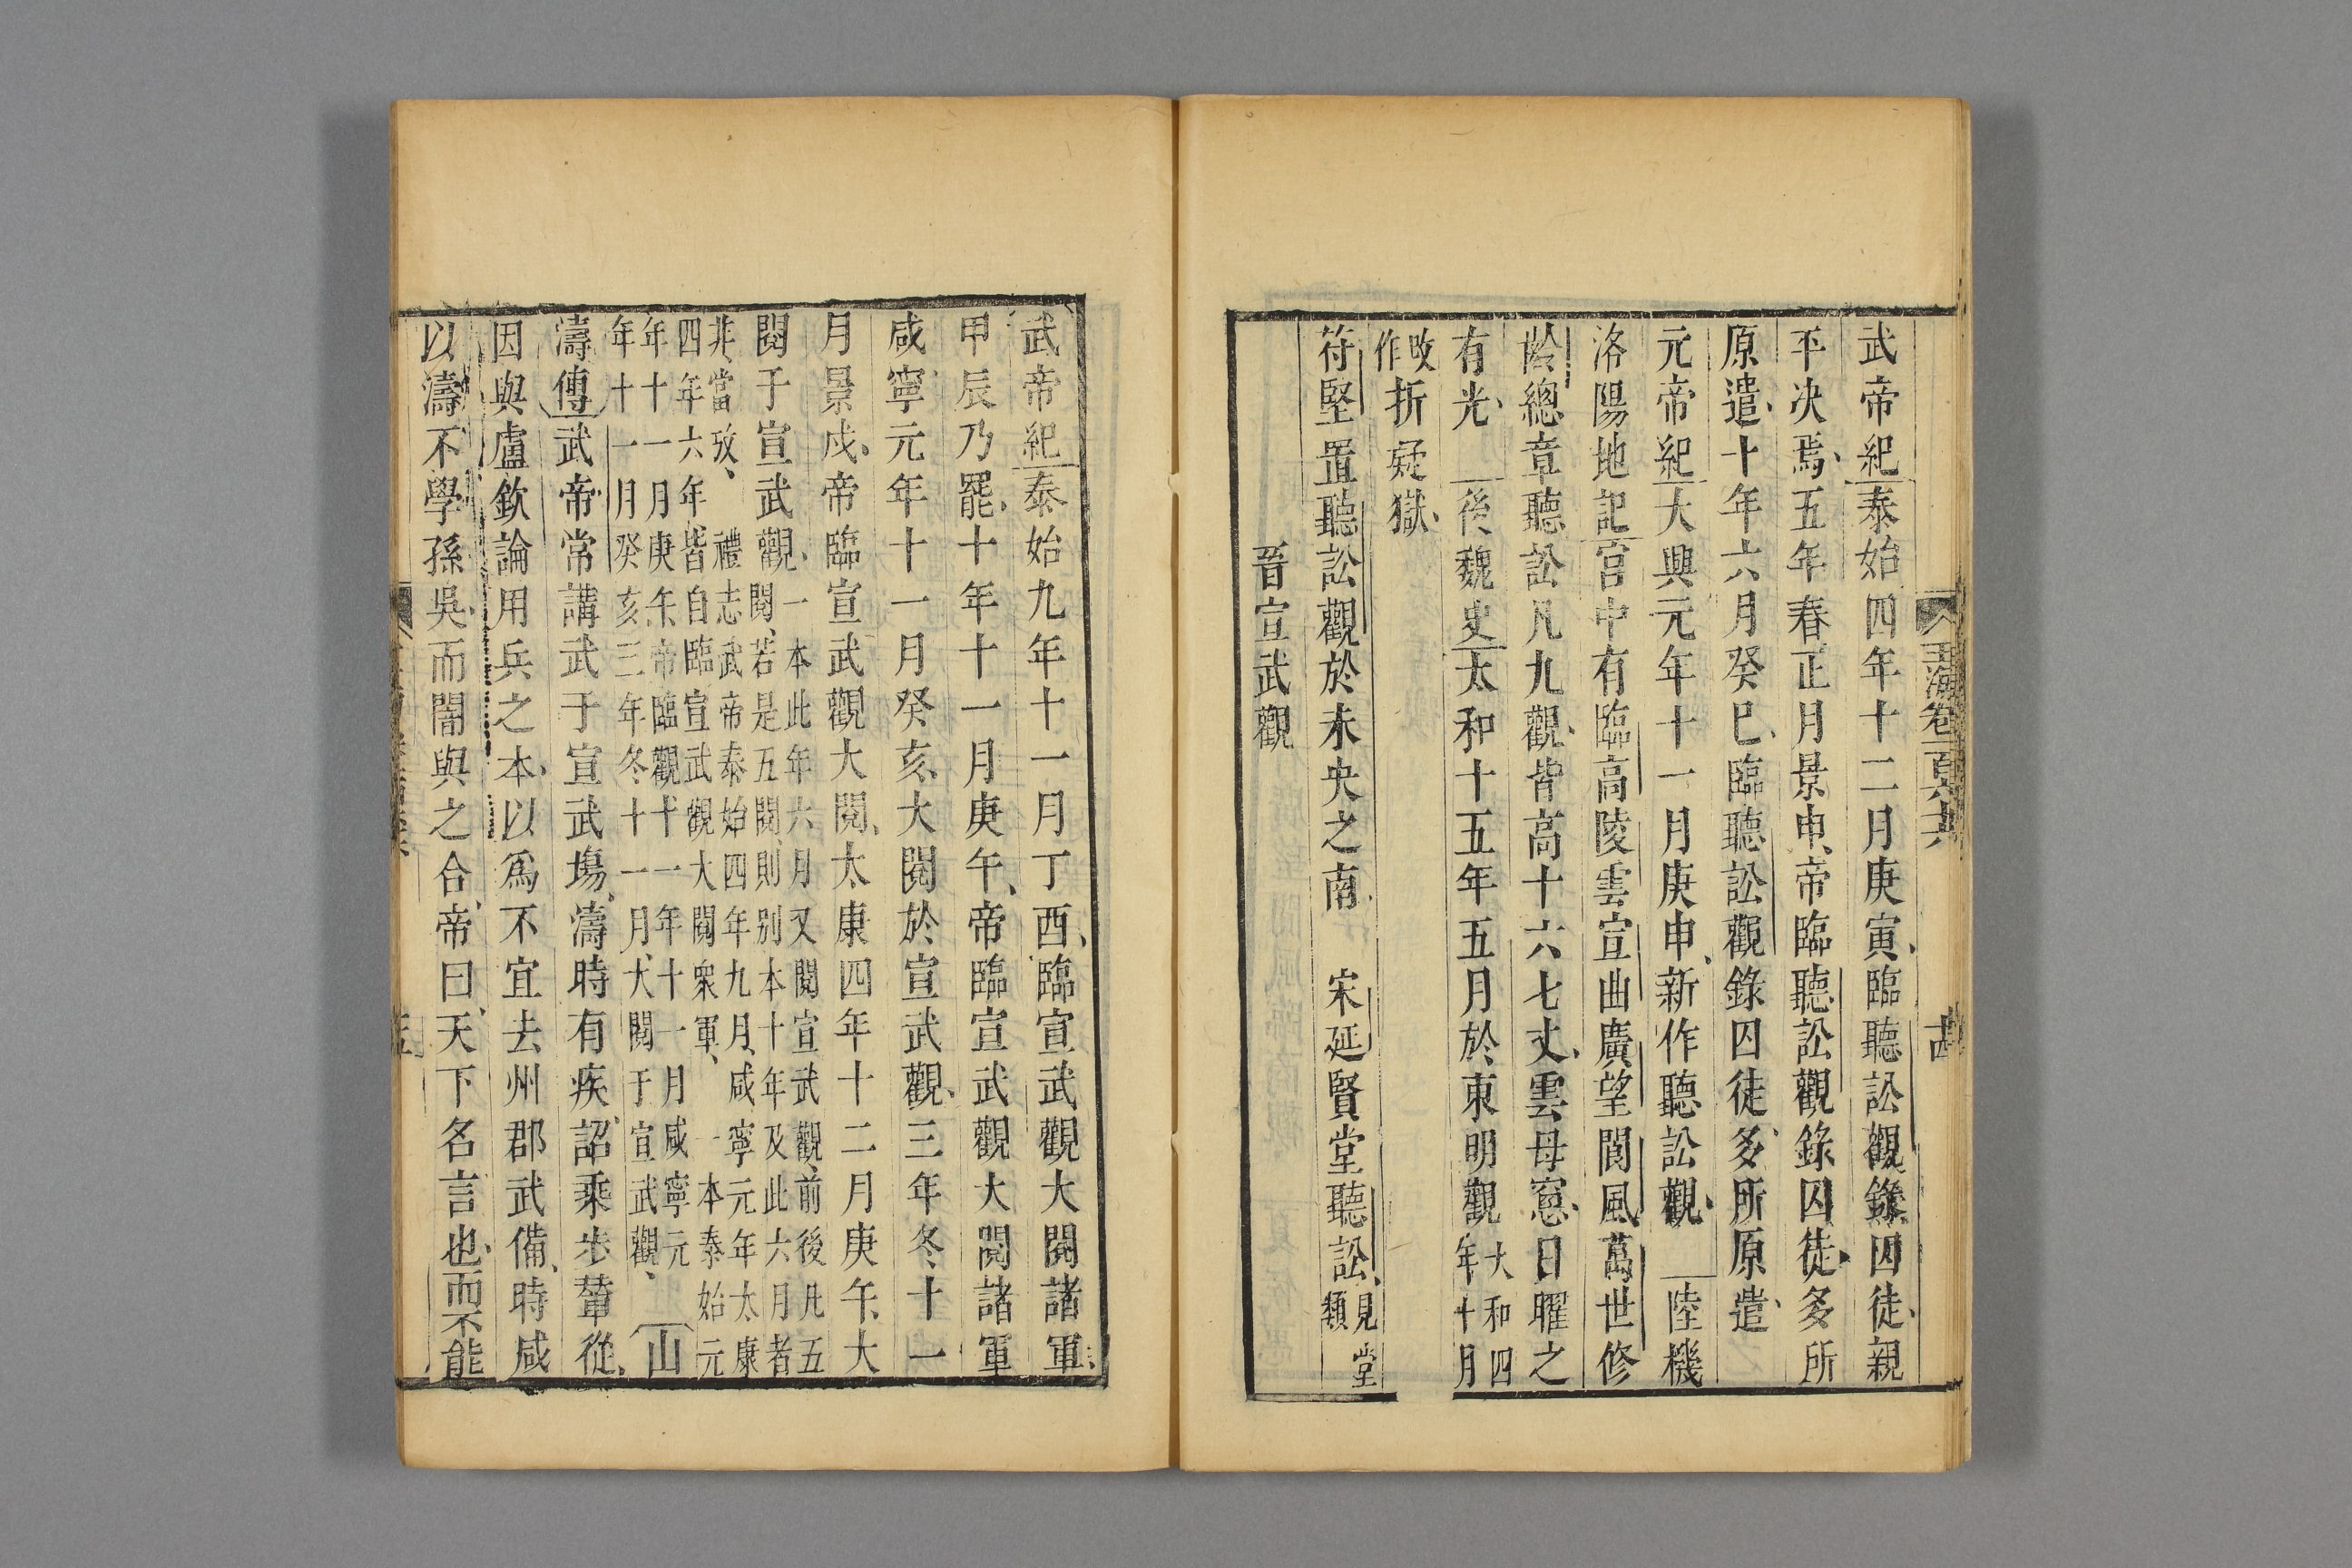 玉海卷一百六十六
武帝紀泰始四年十二月庚寅臨聽訟觀錄囚徒親
平决焉五年春正月景申帝臨聽訟觀錄囚徒多所
原遣十年六月癸巳臨聽訟觀錄囚徒多所原遣
元帝紀大興元年十一月庚申新作聽訟觀 陸機
洛陽地記宮中有臨高陵雲宣曲廣望閬風萬世修
齡總章聽訟凡九觀皆高十六七丈雲母窻日曜之
有光 後魏史太和十五年五月於東明觀大和四年十月
改作折疑獄
苻堅置聽訟觀於未央之南 宋延賢堂聽訟見堂類
晉宣武觀
武帝紀泰始九年十一月丁酉臨宣武觀大閱諸軍
甲辰乃罷十年十一月庚午帝臨宣武觀大閱諸軍
咸寧元年十一月癸亥大閱於宣武觀三年冬十一
月景戍帝臨宣武觀大閱太康四年十二月庚午大
閱于宣武觀一本此年六月又閱宣武觀前後凡五
閱若是五閱則别本十年及此六月者
非當攷 禮志武帝泰始四年九月咸寧元年太康
四年六年皆自臨宣武觀大閱衆軍 一本泰始元
年十一月庚午帝臨觀十一年十一月咸寧元
年十一月癸亥三年冬十一月大閱于宣武觀 山
濤傳武帝常講武于宣武塲濤時有疾詔乘步輦從
因與盧欽論用兵之本以爲不宜去州郡武備時咸
以濤不學孫吳而闇與之合帝曰天下名言也而不能